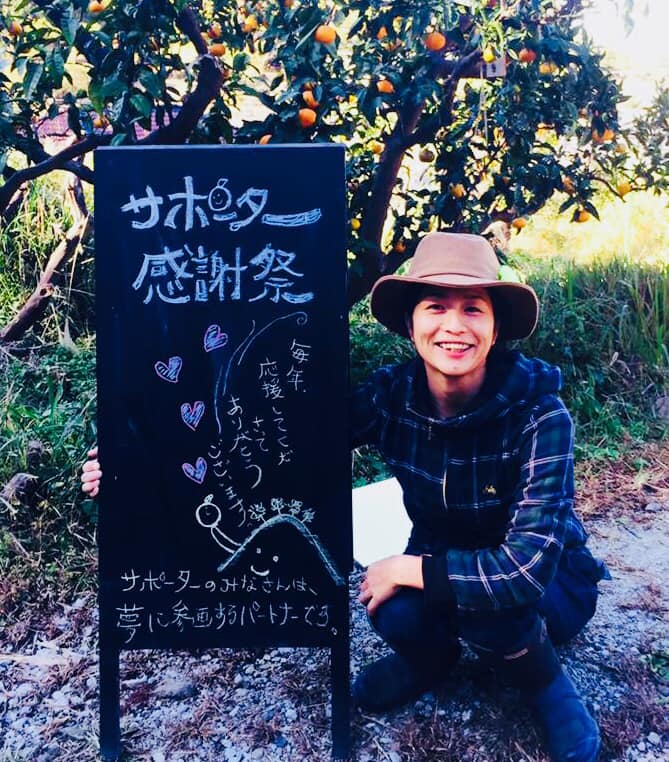 サポーター
感謝祭
毎年、
応援してくだ
さて
ありがとう
ございます。
サポーターのみなさんは、
夢に参画するパートナーです。